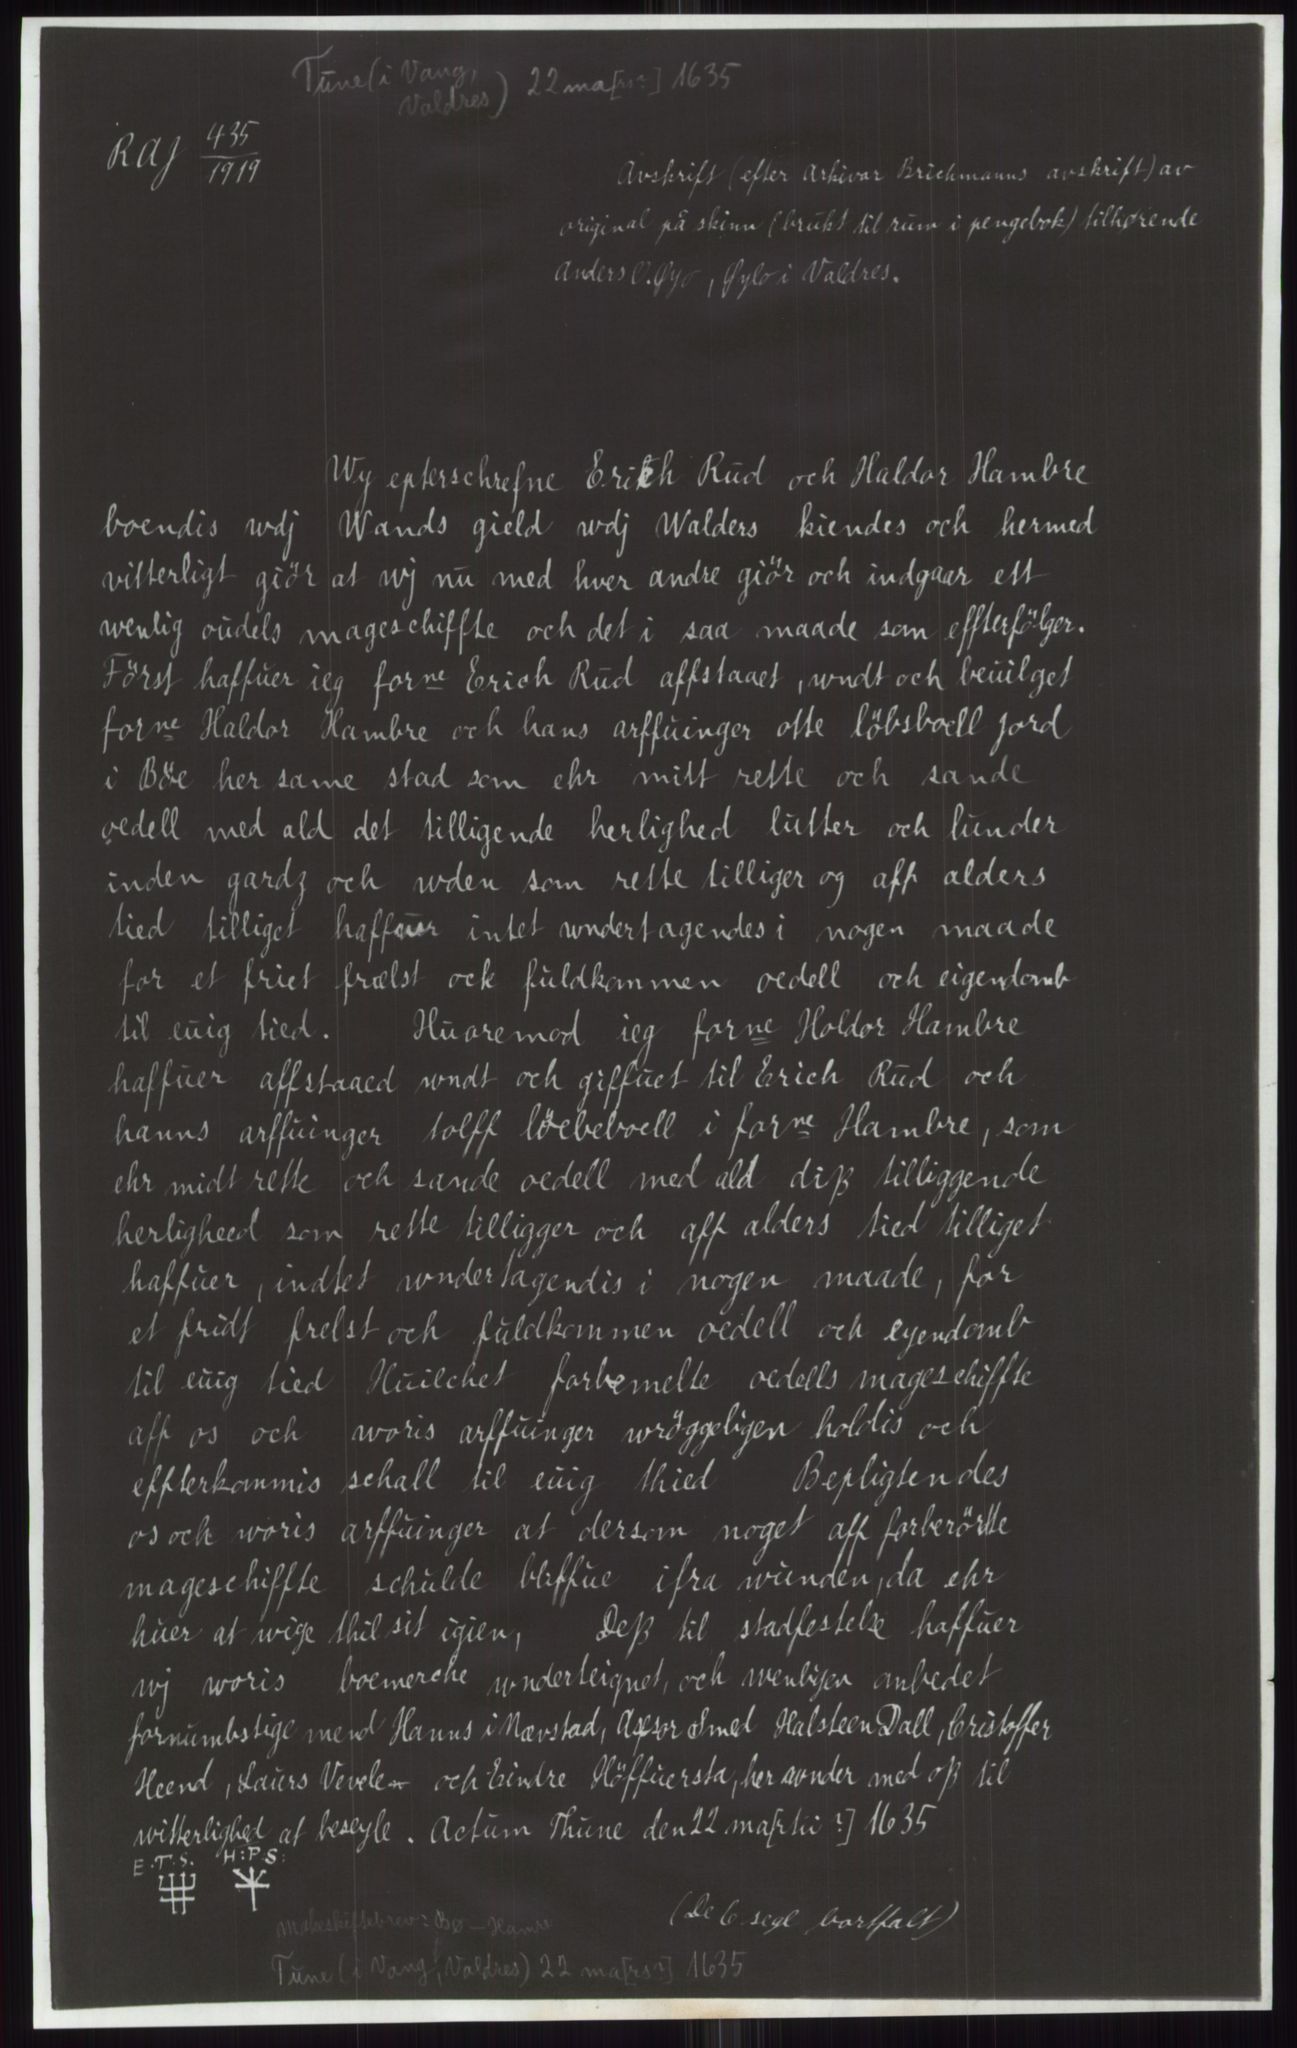 Tune (i Vang,
Valdres) 22 ma[rs?] 1635
RAJ 435
1919
Avskrift (efter Arkivar Brichmanns avskrift) av
original på skinn (brukt til rum i pengebok) tilhørende
Anders O. Øyo, Øylo i Valdres.
Wy epterschrefne Erich Rud och Haldor Hambre
boendis wdj Wands gield wdj Walders kiendes och hermed
vitterligt giör at wj nu med hver andre giör och indgaar ett
wenlig oudels mageschiffte och det i saa maade som effterfölger.
Först haffuer ieg forne Erich Rud affstaaet, wndt och beuilget
forne Haldor Hambre och hans arffuinger otte löbsboell jord
i Böe her same stad som ehr mitt rette och sande
oedell med ald det tilligende herlighed lutter och lunder
inden gardz och wden som rette tilliger og aff alders
tied tilliget haffuer intet wndertagendes i nogen maade
for et friet frælst ock fuldkommen oedell och eigendomb
til euig tied. Huoremod ieg forne Holdor Hambre
haffuer affstaaed wndt och giffuet til Erich Rud och
hanns arffuinger tolff löebeboell i forne Hambre, som
ehr midt rette och sande oedell med ald diß tilliggende
herligheed som rette tilligger och aff alders tied tilliget
haffuer, indtet wndertagendis i nogen maade, for
et fridt frelst och fuldkommen oedell och eyendomb
til euig tied Huilchet forbemelte oedells mageschiffte
aff os och woris arffuinger wröggeligen holdis och
effterkommis schall til euig thied Bepligtendes
os och woris arffuinger at dersom noget aff forberörte
mageschiffte schulde bliffue ifra wunden, da ehr
huer at wige thil sit igien, Deß til stadfestelse haffuer
wj woris boemerche wnderteignet, och wenligen anbedet
fornumbstige mend Hanns i Nævstad, Assor Smed Halsteen Dall, Cristoffer
Heend, Laurs Vevele och Eindre Höffuersta, her wnder med oß til
witterlighed at beseyle. Actum Thune den 22 ma[rtii ?] 1635
E.T.S. H:P.S:
(De 6 segl bortfalt)
Makeskiftebrev: Bø – Hamre
Tune (i Vang, Valdres) 22 ma[rs?] 1635